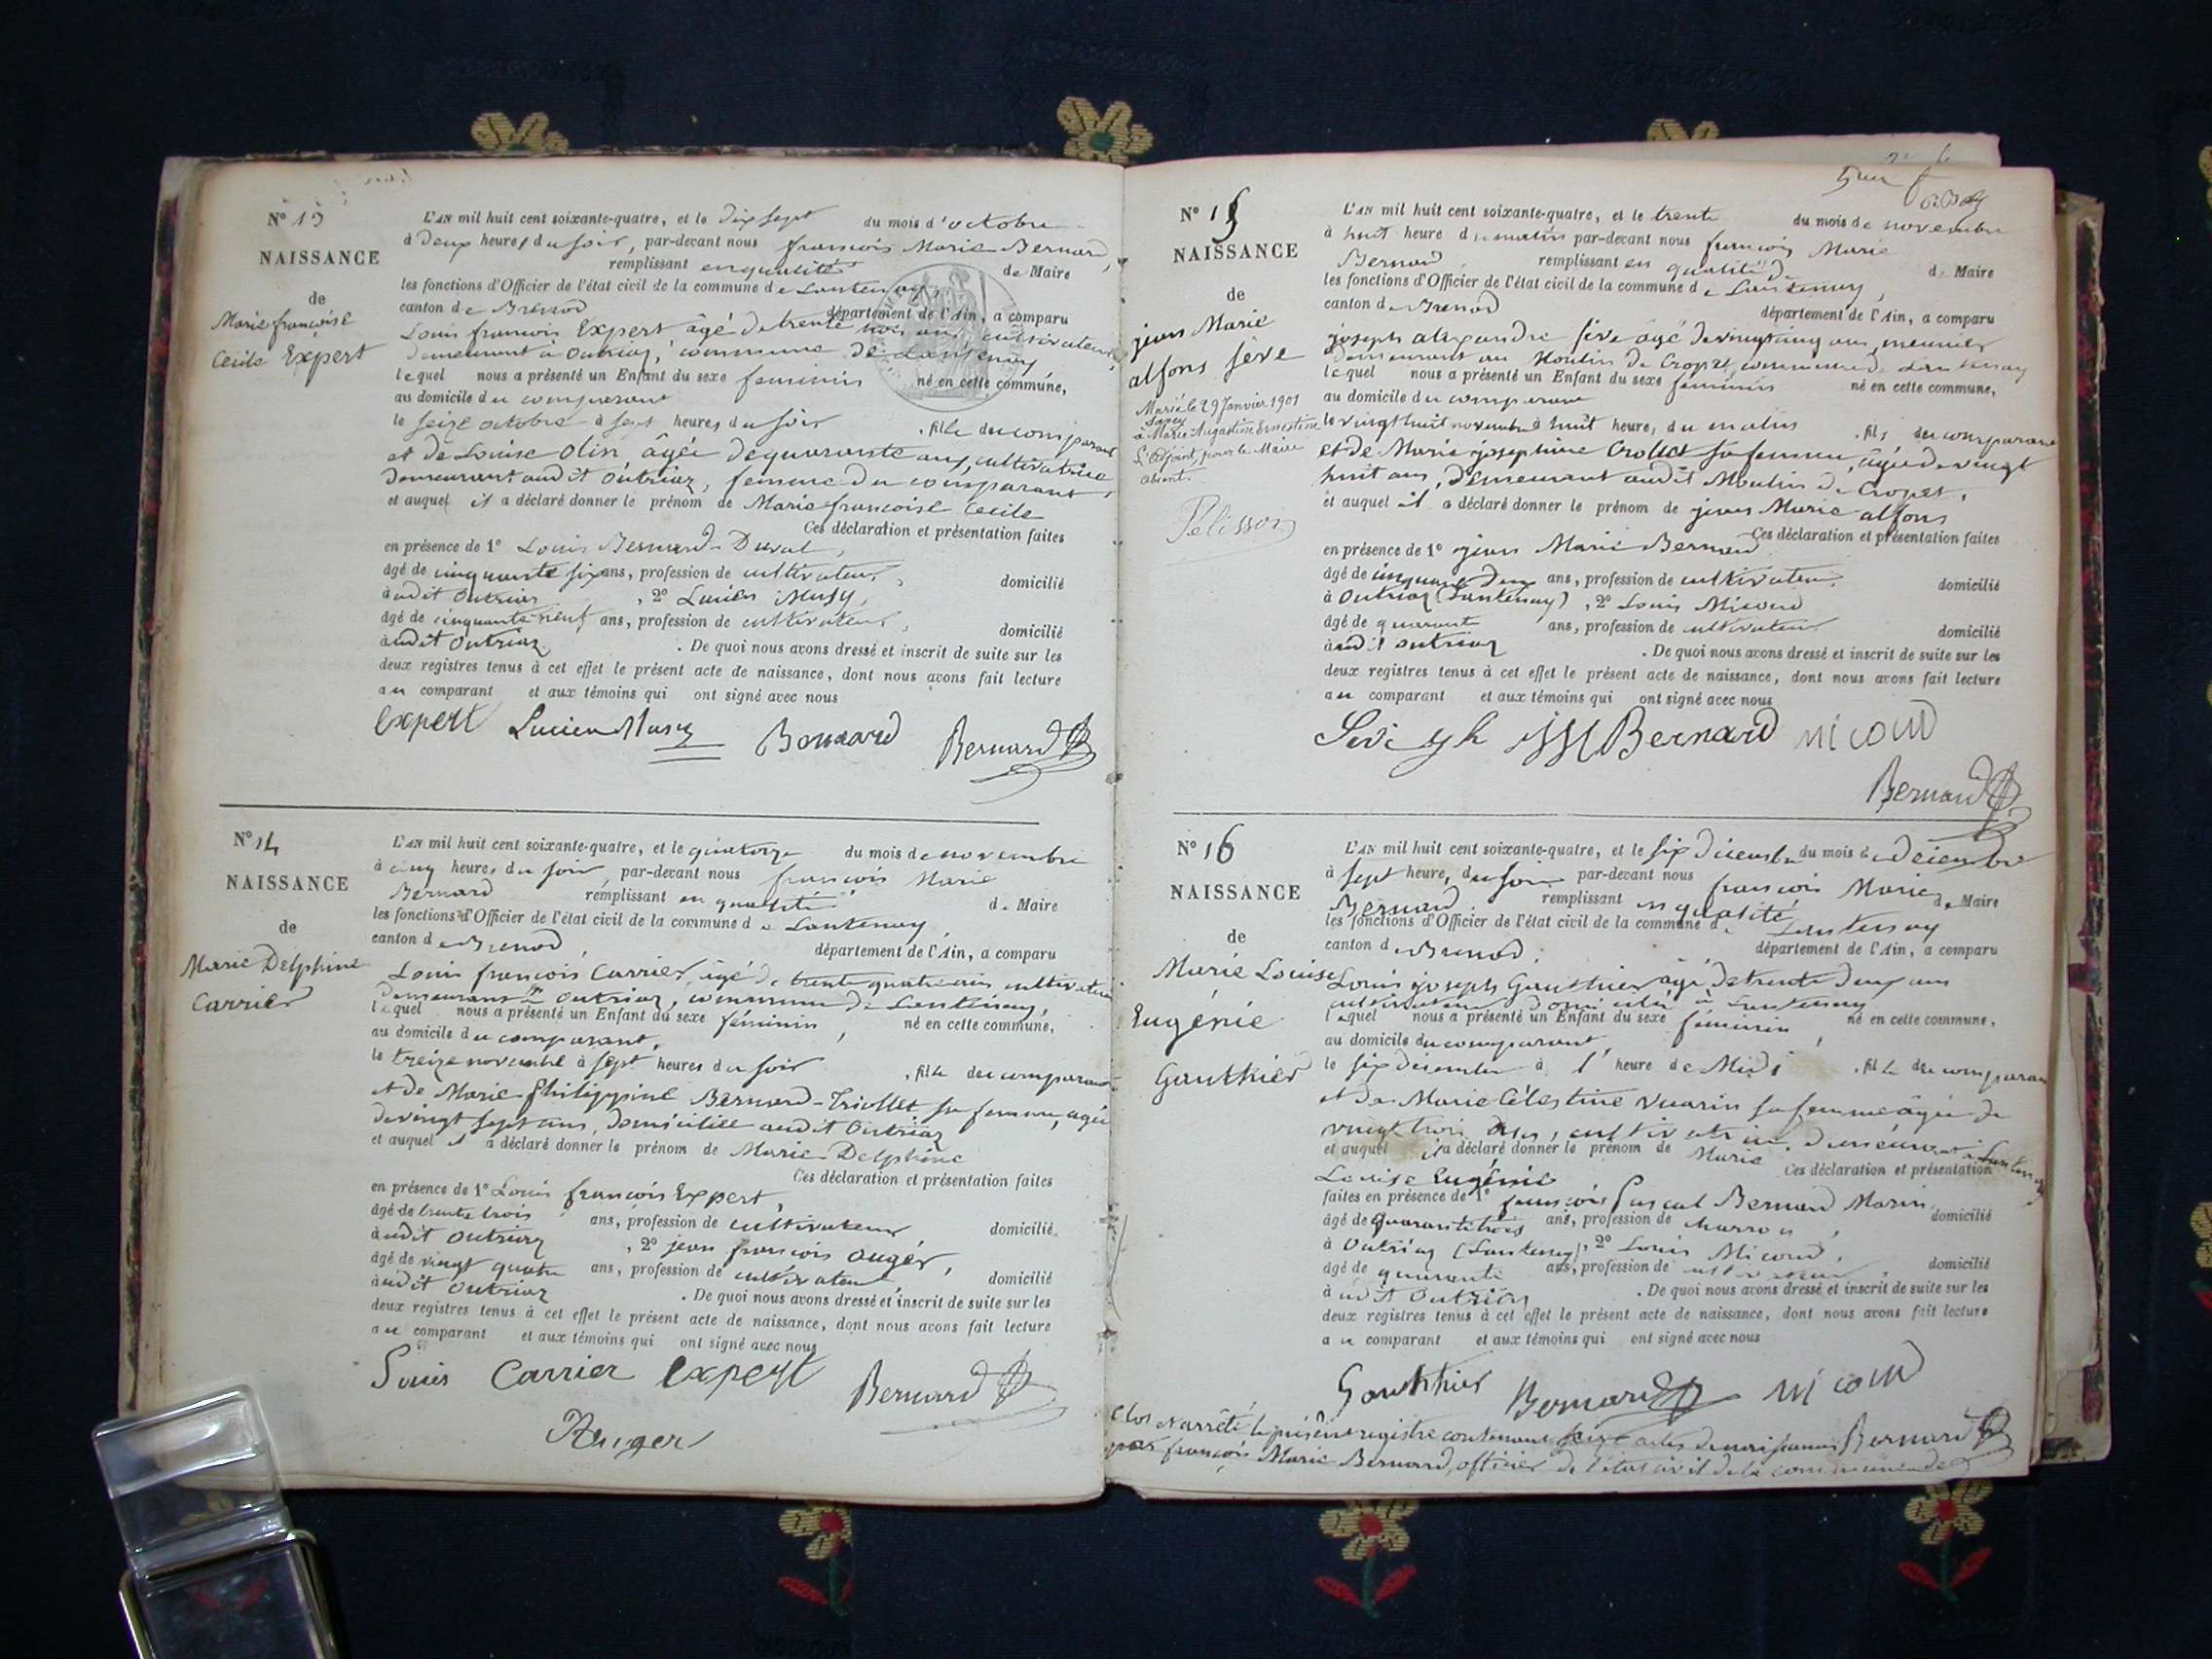 N° 13
NAISSANCE
de
Marie françoise
Cécile Expert
L'AN mil huit cent soixante-quatre, et le dix sept du mois d'octobre
à deux heures du soir, par-devant nous françois Marie Bernard,
remplissant en qualité de Maire
les fonctions d'Officier de l'état civil de la commune de Lantenay,
canton de Brenod département de l'Ain, a comparu
Louis françois Expert âgé de trente trois ans, cultivateur,
demeurant à Outriaz, commune de Lantenay
lequel nous a présenté un Enfant du sexe feminin né en cette commune,
au domicile du comparant
le seize octobre à sept heures du soir, fille du comparant
et de Louise Olin âgée de quarante ans, cultivatrice
demeurant audit Outriaz, femme du comparant,
et auquel il a déclaré donner le prénom de Marie françoise Cecile
Ces déclaration et présentation faites
en présence de 1° Louis Bernard-Duval,
âgé de cinquante six ans, profession de cultivateur, domicilié
à udit Outriaz, 2° Lucien Musy,
âgé de cinquante neuf ans, profession de cultivateur, domicilié
à udit Outriaz. De quoi nous avons dressé et inscrit de suite sur les
deux registres tenus à cet effet le présent acte de naissance, dont nous avons fait lecture
au comparant et aux témoins qui ont signé avec nous
Expert Lucien Musy Bernard Bernard
N° 14
NAISSANCE
de
Marie Delphine
Carrier
L'AN mil huit cent soixante-quatre, et le quatorze du mois de novembre
à cinq heures du soir, par-devant nous françois Marie
Bernard remplissant en qualité de Maire
les fonctions d'Officier de l'état civil de la commune de Lantenay,
canton de Brenod, département de l'Ain, a comparu
Louis françois Carrier, âgé de trente quatre ans, cultivateur
demeurant à Outriaz, commune de Lantenay,
lequel nous a présenté un Enfant du sexe féminin, né en cette commune,
au domicile du comparant,
le treize novembre à sept heures du soir, fille du comparant
et de Marie-Philippine Bernard-Triollet sa femme, agée
de vingt sept ans, domiciliée audit Outriaz
et auquel il a déclaré donner le prénom de Marie-Delphine
Ces déclaration et présentation faites
en présence de 1° Louis françois Expert,
âgé de trente trois ans, profession de cultivateur domicilié
à udit Outriaz, 2° jean françois Auger,
âgé de vingt quatre ans, profession de cultivateur domicilié
à udit Outriaz. De quoi nous avons dressé et inscrit de suite sur les
deux registres tenus à cet effet le présent acte de naissance, dont nous avons fait lecture
au comparant et aux témoins qui ont signé avec nous
Louis Carrier Expert Bernard
Auger
N° 15
NAISSANCE
de
jean Marie
alfons fève
Marié le 29 Janvier 1901
à Marie Augustine Ernestine
L'adjoint, pour le Maire
absent.
Pelisson
L'AN mil huit cent soixante-quatre, et le trente du mois de novembre
à huit heure du matin par-devant nous françois Marie
Bernard remplissant en qualité de Maire
les fonctions d'Officier de l'état civil de la commune de Lantenay,
canton de Brenod département de l'Ain, a comparu
joseph alexandre féve âgé de vingt cinq ans, meunier
demeurant au Moulin de Cropet, commune de Lantenay
lequel nous a présenté un Enfant du sexe féminin né en cette commune,
au domicile du comparant
le vingt huit novembre à huit heure, du matin, fils du comparant
et de Marie josephine Crollet sa femme, âgée de vingt
huit ans, demeurant audit Moulin de Cropet,
et auquel il a déclaré donner le prénom de jean Marie alfons
Ces déclaration et présentation faites
en présence de 1° jean Marie Bernard
âgé de cinquante deux ans, profession de cultivateur, domicilié
à Outriaz (Lantenay), 2° Louis Micoud
âgé de quarante ans, profession de cultivateur domicilié
à udit outriaz. De quoi nous avons dressé et inscrit de suite sur les
deux registres tenus à cet effet le présent acte de naissance, dont nous avons fait lecture
au comparant et aux témoins qui ont signé avec nous
Bernard micoud
Bernard
N° 16
NAISSANCE
de
Marie Louise
Eugénie
Gauthier
L'AN mil huit cent soixante-quatre, et le six décembre du mois de décembre
à sept heure, du soir par-devant nous françois Marie
Bernard remplissant en qualité de Maire
les fonctions d'Officier de l'état civil de la commune de Lantenay
canton de Brenod, département de l'Ain, a comparu
Louis joseph Gauthier âgé de trente deux ans
cultivateur domicilié à Lantenay
lequel nous a présenté un Enfant du sexe féminin né en cette commune,
au domicile du comparant,
le six décembre à l'heure de Midi, fille du comparant
et de Marie Célestine Vuarin sa femme âgée de
vingt trois ans, cultivatrice, demeurant à Lantenay
et auquel il a déclaré donner le prénom de Marie Ces déclaration et présentation
Louise Eugénie
faites en présence de 1° françois Pascal Bernard Marin, domicilié
âgé de quarante trois ans, profession de charron,
à Outriaz (Lantenay), 2° Louis Micoud,
âgé de quarante ans, profession de cultivateur domicilié
à udit Outriaz. De quoi nous avons dressé et inscrit de suite sur les
deux registres tenus à cet effet le présent acte de naissance, dont nous avons fait lecture
au comparant et aux témoins qui ont signé avec nous
Gauthier Bernard micoud
Clos et arrêté le présent registre contenant seize actes de naissances Bernard
par françois Marie Bernard, officier de l'état civil de la commune de